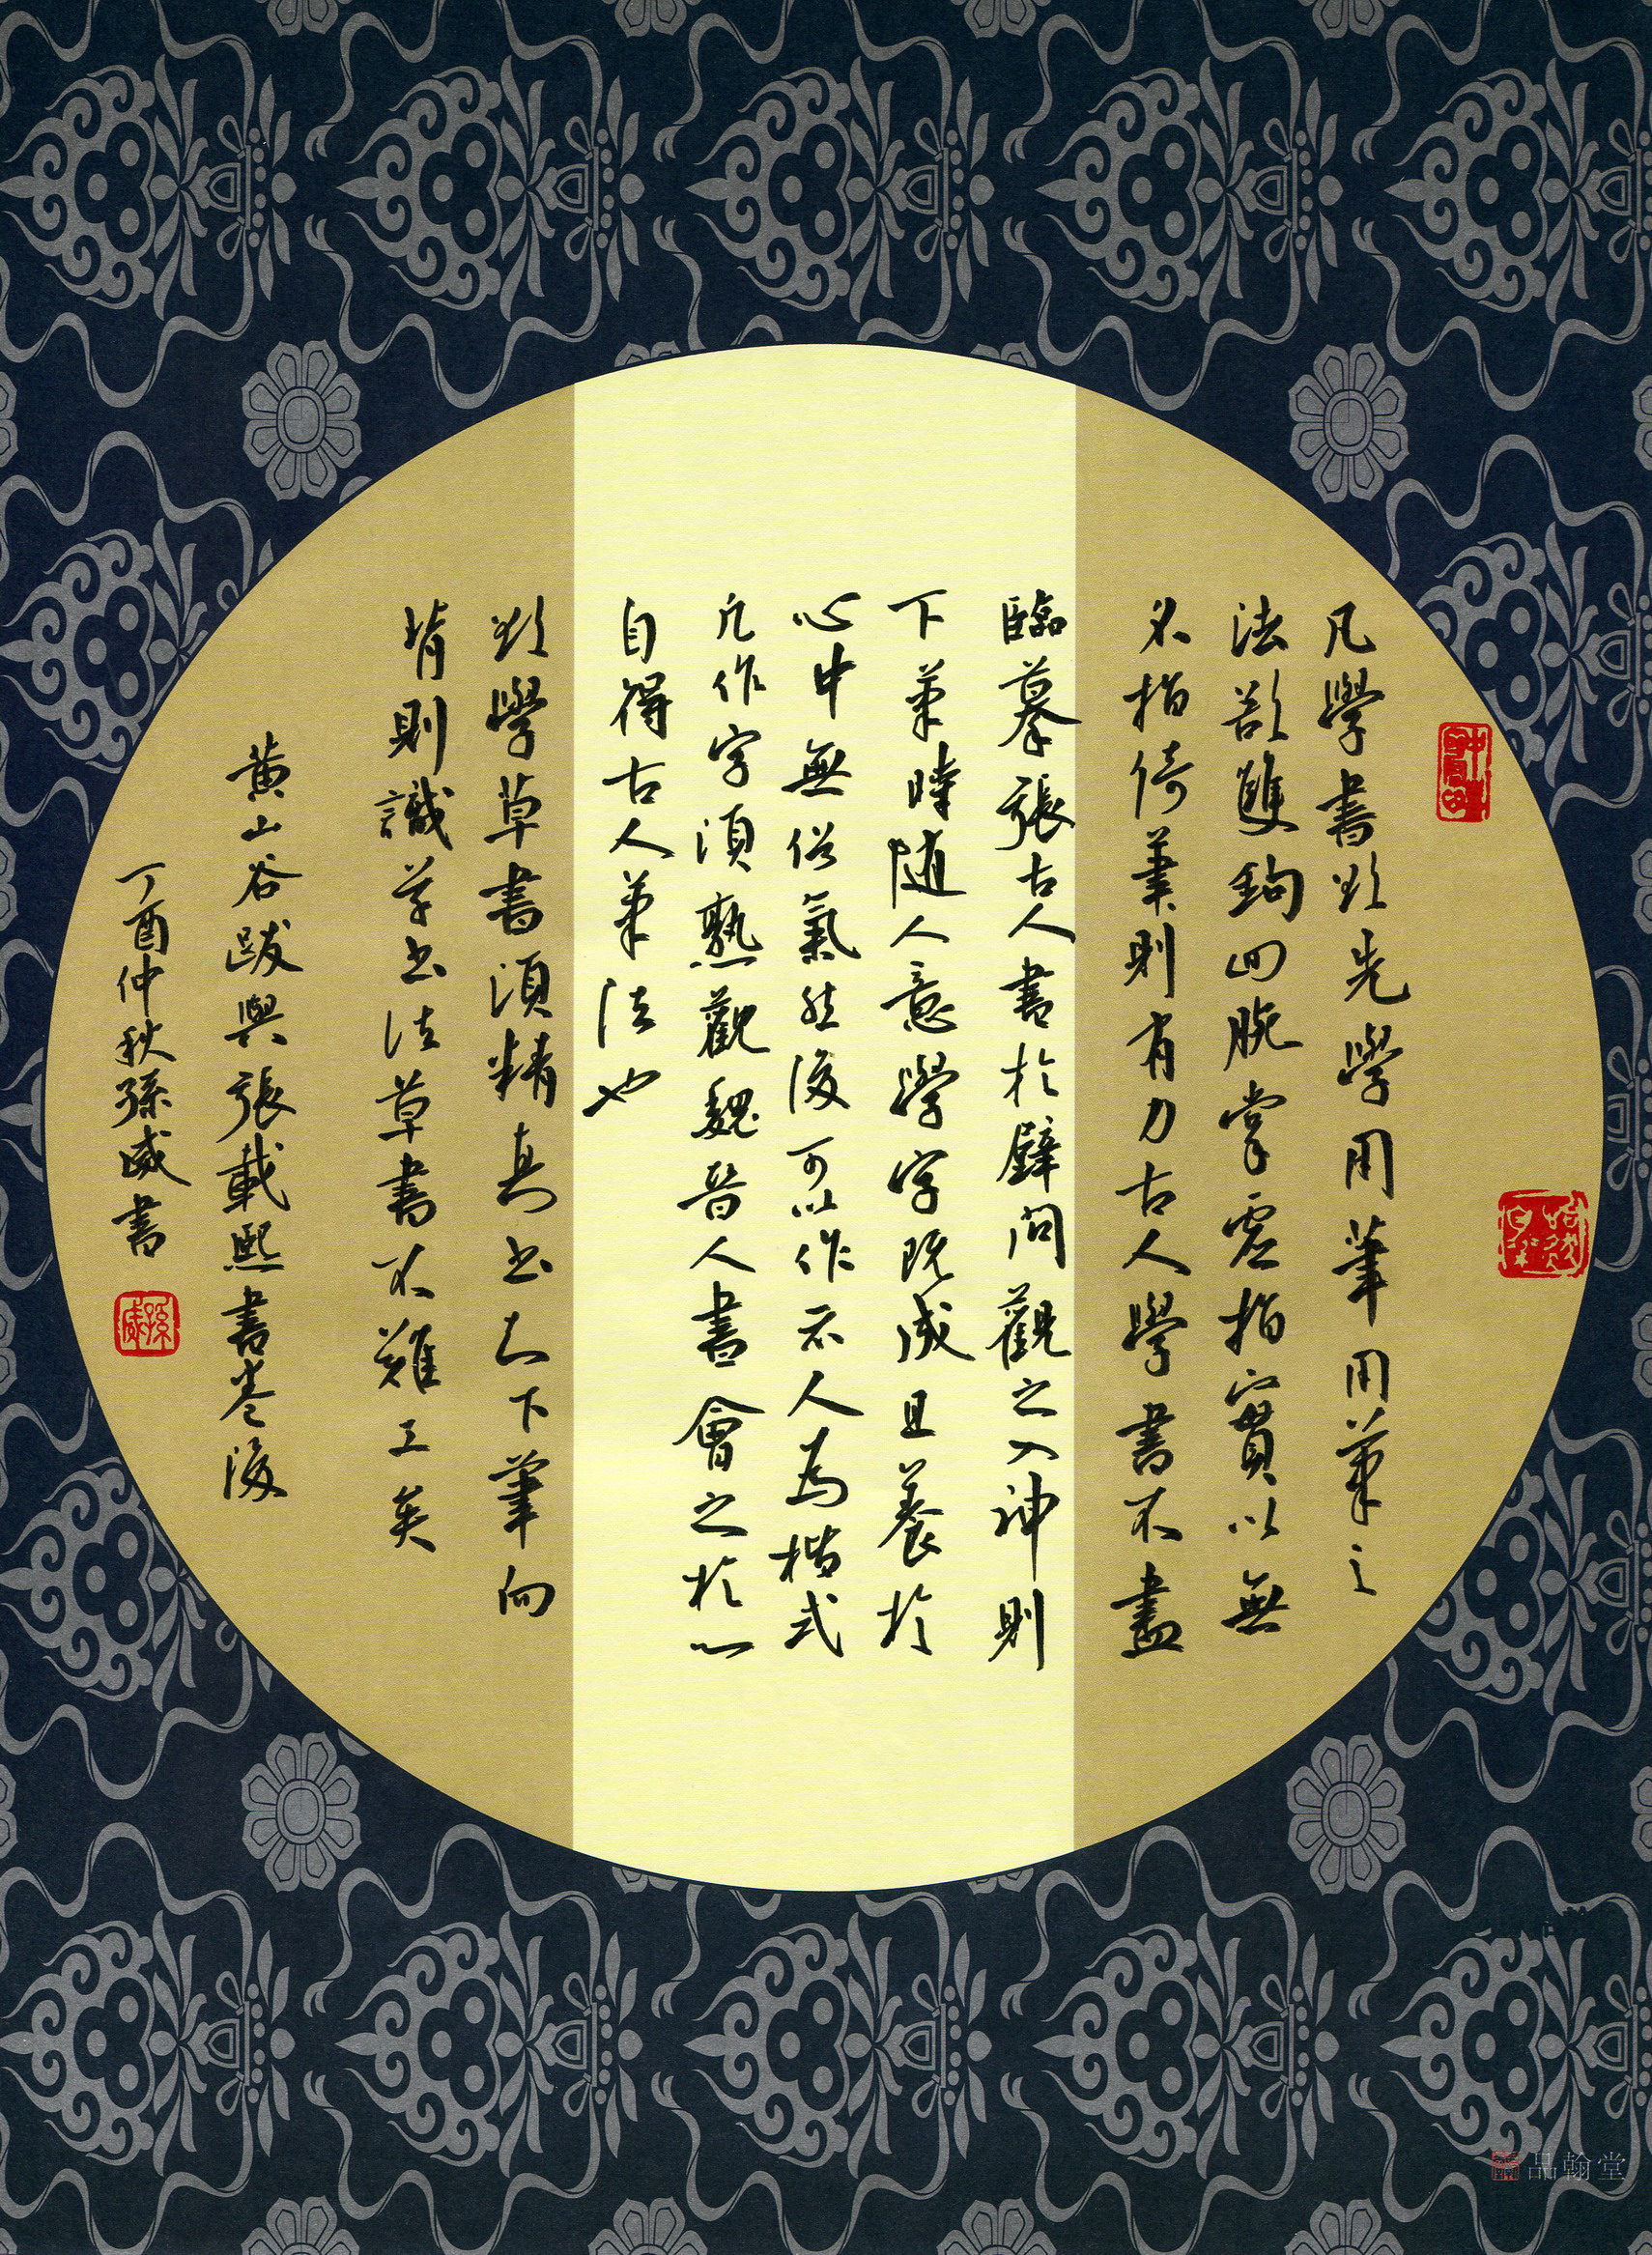 凡學書欲先學用筆用筆之
法欲雙鉤回腕掌虛指實以無
名指倚筆則有力古人學書不盡
臨摹張古人書於壁間觀之入神則
下筆時隨人意學字既成且養於
心中無俗氣然後可以作示人為楷式
凡作字須熟觀魏晉人書會之於心
自得古人筆法也
欲學草書須精真書知下筆向
背則識草書法草書不難工矣
黃山谷跋與張載熙書卷後
丁酉仲秋孫威書
孫威
品翰堂